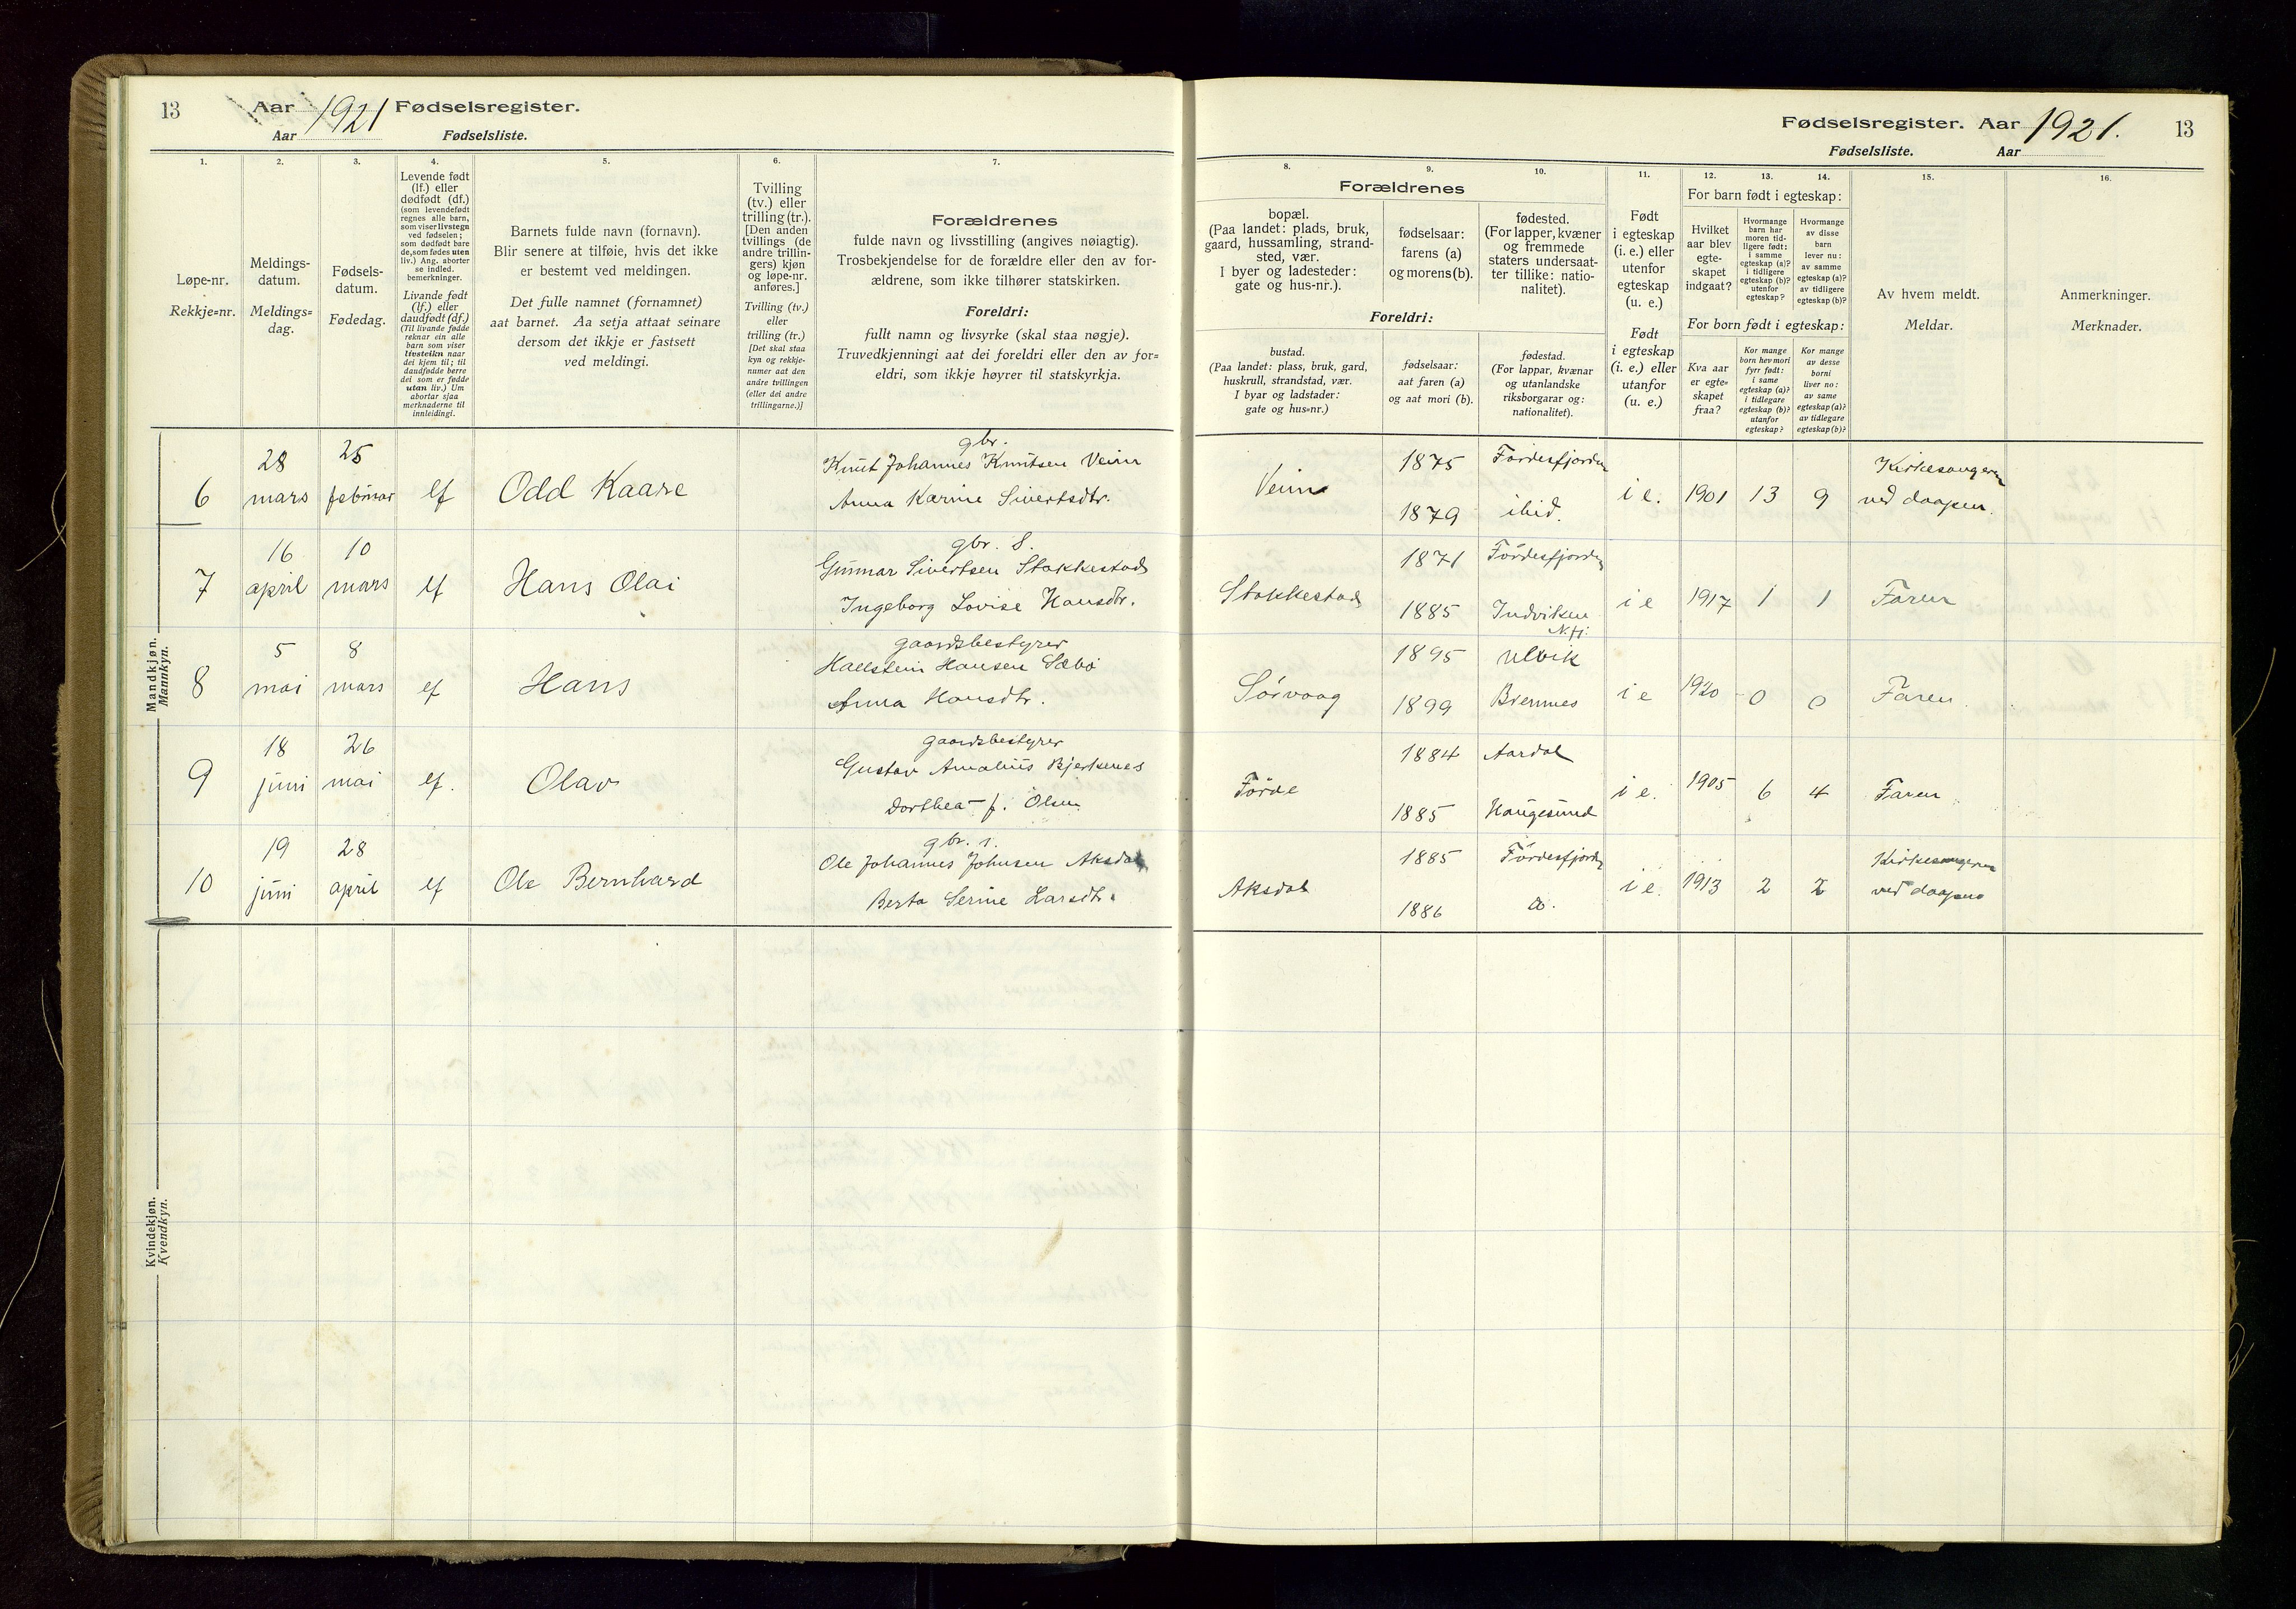 13
Aar 1921 Fødselsregister.
Aar Fødselsliste.
1.
2.
3.
4.
5.
6.
7.
Løpe-nr.
Rekkje=nr.
Meldings-
datum.
Meldings=
dag.
Fødsels-
datum.
Fødedag.
Levende født
(lf.) eller
dødfødt (df.)
(som levendefødt
regnes alle barn,
som viser livstegn
ved fødselen;
som dødfødt bare
de, som fødes uten
liv.) Ang. aborter
se indled.
bemerkninger.
Livande født
(lf.) eller
daudfødt (df.)
(Til livande fødde
reknar ein alle
barn som viser
livsteikn naar
dei kjem til; til
daudfødde berre
dei som er fødde
utan liv.) Um
abortar sjaa
merknaderne til
innleidingi.
Barnets fulde navn (fornavn).
Blir senere at tilføie, hvis det ikke
er bestemt ved meldingen.
Det fulle namnet (fornamnet)
aat barnet. Aa setja attaat seinare
dersom det ikkje er fastsett
ved meldingi.
Tvilling
(tv.) eller
trilling (tr.).
[Den anden
tvillings (de
andre trillin-
gers) kjøn
og løpe-nr.
anføres.]
Tvilling (tv.)
eller
trilling (tr.)
[Det skal staa
kyn og rekkje-
numer aat den
andre tvillingen
(eller dei andre
trillingarne.)]
Forældrenes
fulde navn og livsstilling (angives nøiagtig).
Trosbekjendelse for de forældre eller den av for-
ældrene, som ikke tilhører statskirken.
Foreldri:
fullt namn og livsyrke (skal staa nøgje).
Truvedkjenningi aat dei foreldri eller den av for=
eldri, som ikkje høyrer til statskyrkja.
Mandkjøn.
Mannkyn.
6
28
mars
25
februar
lf
Odd Kaare
gbr.
Knut Johannes Knutsen Veim
Anna Karine Sivertsdtr.
7
16
april
10
mars
lf
Hans Olai
gbr. S.
Gunnar Sivertsen Stakkestad
Ingeborg Lovise Hansdtr.
8
5
mai
8
mars
lf
Hans
gaardsbestyrer
Hallstein Hansen Sæbø
Anna Hansdtr.
9
18
juni
26
mai
lf.
Olav
gaardsbestyrer
Gustav Amalius Bjerkenes
Dorthea f. Olsen
10
19
juni
28
april
lf
Ole Bernhard
gbr. s.
Ole Johannes Johnsen Aksdal
Berta Serine Larsdtr.
Kvindekjøn.
Kvendkyn.
Fødselsregister. Aar 1921.
13
Fødselsliste. Aar
8.
9.
10.
11.
12.
13.
14.
15.
16.
Forældrenes
bopæl.
(Paa landet: plads, bruk,
gaard, hussamling, strand-
sted, vær.
I byer og ladesteder:
gate og hus-nr.).
fødselsaar:
farens (a)
og morens (b).
fødested.
(For lapper, kvæner
og fremmede
staters undersaat-
ter tillike: natio-
nalitet).
Foreldri:
bustad.
(Paa landet: plass, bruk, gard,
huskrull, strandstad, vær.
I byar og ladstader:
gate og hus=nr.)
fødselsaar:
aat faren (a)
og aat mori (b).
fødestad.
(For lappar, kvænar
og utanlandske
riksborgarar og:
nationalitet).
Født
i egteskap
(i. e.) eller
utenfor
egteskap
(u. e.)
Født
i egteskap
(i. e.) eller
utanfor
(u. e.)
For barn født i egteskap:
Hvilket
aar blev
egte-
skapet
indgaat?
Hvormange
barn har
moren tid-
ligere født:
i samme
egteskap (a)?
i tidligere
egteskap (b)?
utenfor
egteskap?
Hvormange
av disse
barn
lever nu:
av samme
egteskap (a)?
av tidligere
egteskap (b)?
For born født i egteskap:
Kva aar
er egte=
skapet
fraa?
Kor mange
born hev mori
fyrr født:
i same
egteskap (a)?
i tidlegare
egteskap (b)?
utanfor
egteskap?
Kor mange
av desse
borni
liver no:
av same
egteskap (a)?
av tidlegare
egteskap (b)?
Av hvem meldt.
Meldar.
Anmerkninger.
Merknader.
Veim
1875
1879
Førdesfjorden
ibid.
i e.
1901
13
9
Kirkesangeren
ved daapen.
Stakkestad
1871
1885
Førdesfjorden
Indviken
N.fj.
i e
1917
1
1
Faren
Sørvaag
1895
1899
Ulvik
Bremnes
i e
1920
0
0
Faren.
Førde
1884
1885
Aardal
Haugesund
i e.
1905
6
4
Faren
Aksdal
1885
1886
Førdesfjorden
i e.
1913
2
2
Kirkesangeren
ved daapen